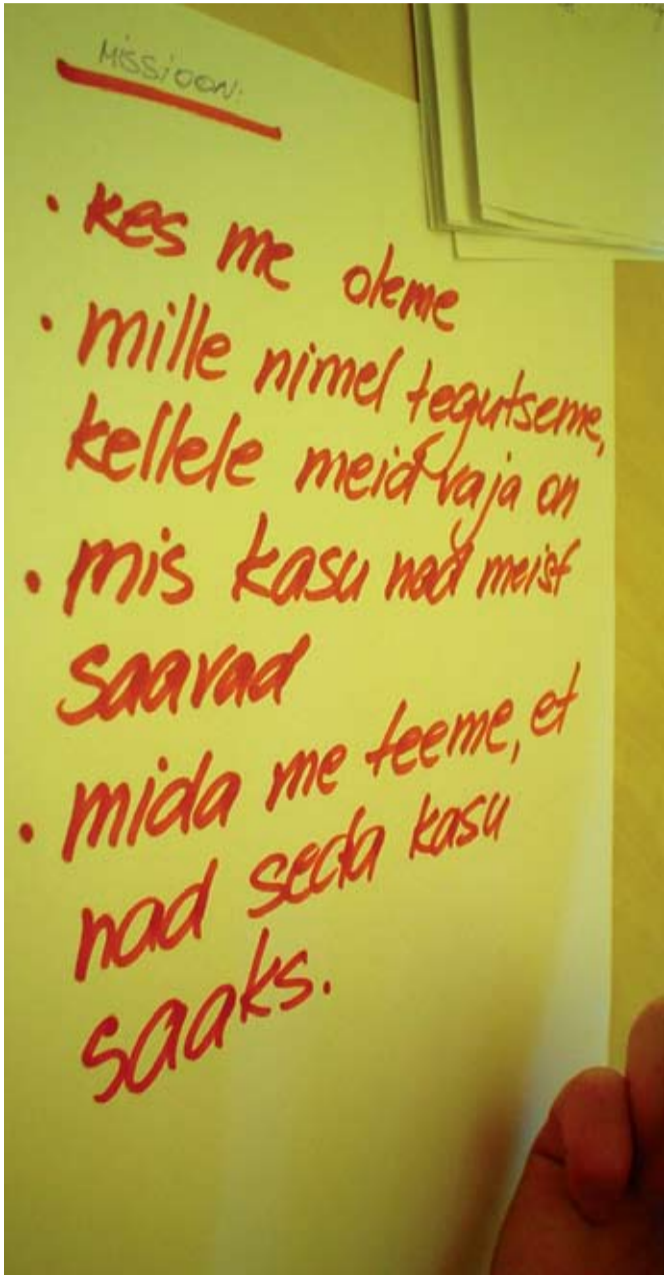 MISSIOON:
• kes me oleme
• mille nimel tegutseme,
kellele meid vaja on
• mis kasu nad meist
saavad
• mida me teeme, et
nad seda kasu
saaks.